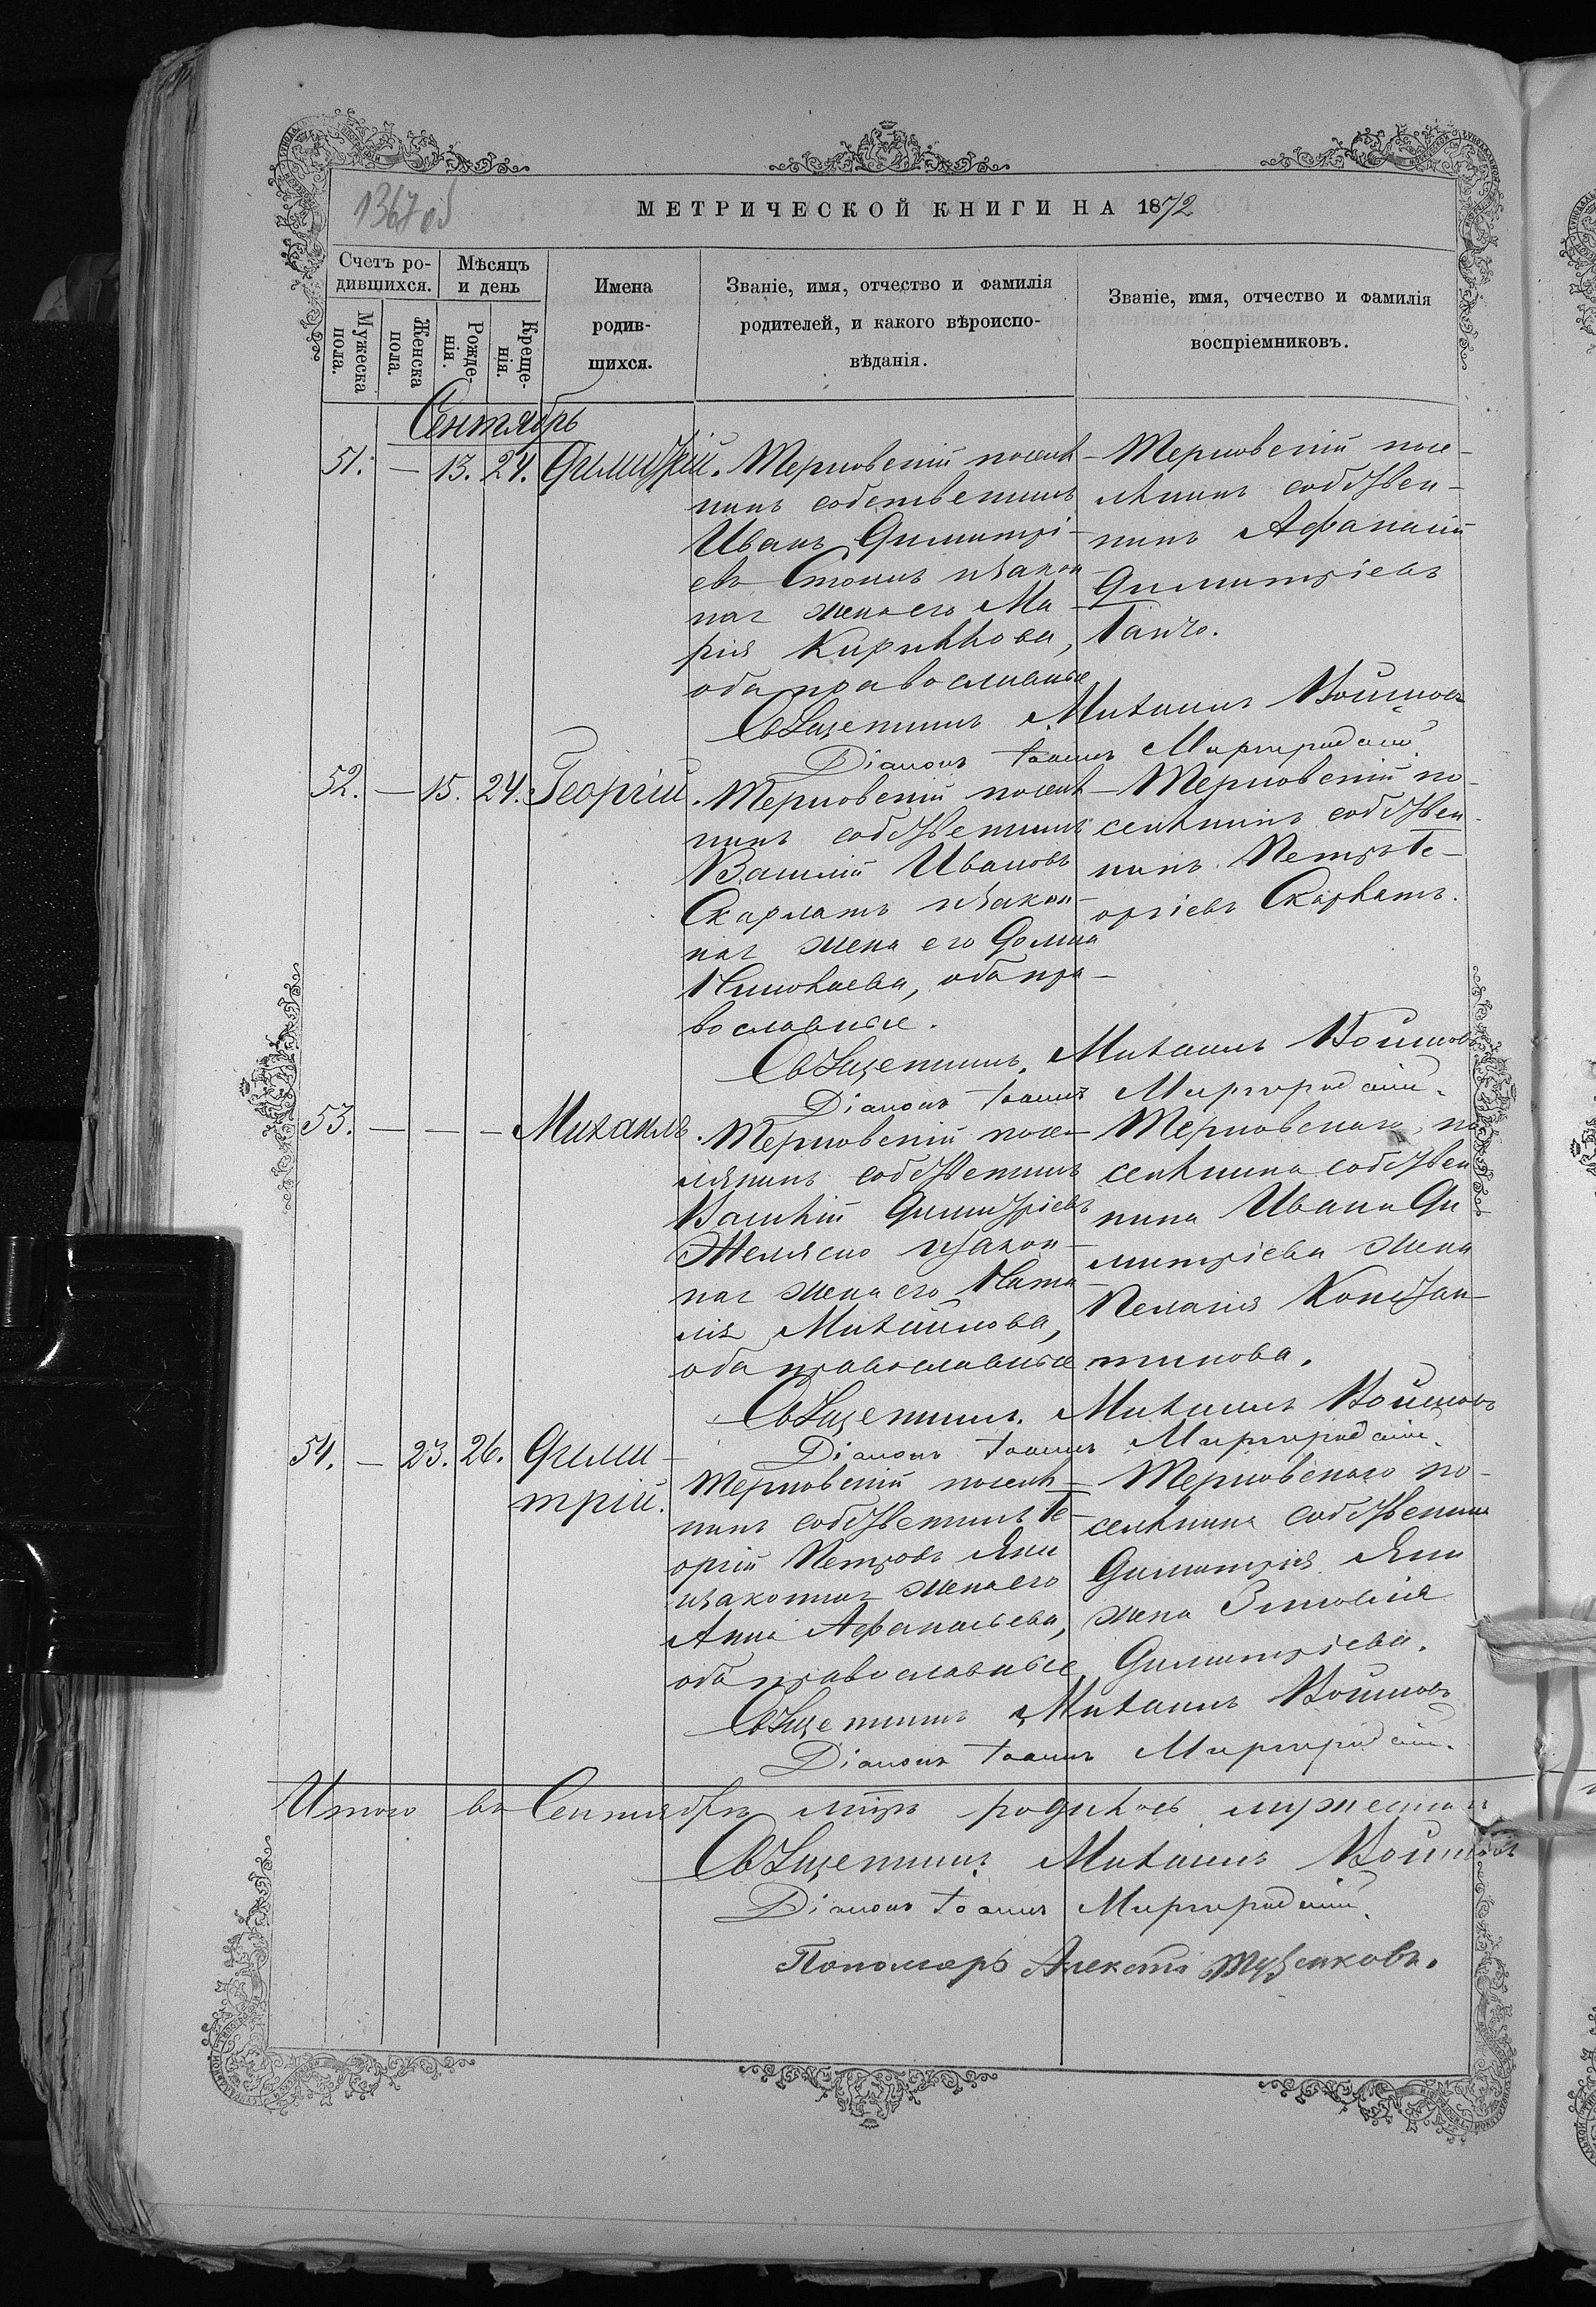 1367 об
МЕТРИЧЕСКОЙ КНИГИ НА 1872
Счетъ ро-
дившихся.
Мѣсяцъ
и день
Мужеска
пола.
Женска
пола
Рожде-
нія.
Креще-
нія.
Имена
родив-
шихся.
Званіе, имя, отчество и фамилія
родителей, и какого вѣроиспо-
вѣданія.
Званіе, имя, отчество и фамилія
воспріемниковъ.
Сентябрь
51. — 13. 24. Димитрій.
Терновскій поселя-
нинъ собственникъ
Иванъ Димитрі-
евъ Стоинъ и закон-
ная жена его Ма-
рія Кирилова,
оба православные
Терновскій посе-
лянинъ собствен-
никъ Афанасій
Димитріевъ
Ганчо.
Священникъ Михаилъ Войновъ
Діаконъ Іоаннъ Маргаридскій.
52. — 15. 24. Георгій.
Терновскій поселя-
нинъ собственникъ
Василій Ивановъ
Скарлатъ и закон-
ная жена его Домна
Николаева, оба пра-
вославные.
Терновскій по-
селянинъ собствен-
никъ Петръ Ге-
оргіевъ Скарлатъ.
Священникъ Михаилъ Войновъ
Діаконъ Іоаннъ Маргаридскій.
53. — — — Михаилъ.
Терновскій посе-
лянинъ собственникъ
Василій Димитріевъ
Желяско и закон-
ная жена его Ната-
лія Михайлова,
оба православные
Терновскаго по-
селянина собствен
ника Ивана Ди
митріева жена
Пелагія Констан-
тинова.
Священникъ Михаилъ Войновъ
Діаконъ Іоаннъ Маргаридскій.
54. — 23. 26. Дими-
трій.
Терновскій поселя-
нинъ собственникъ Ге-
оргій Петровъ Яни
и законная жена его
Анна Афанасьева,
оба православные
Терновскаго по-
селянина собственника
Димитрія Яни
жена Зиновія
Димитріева.
Священникъ Михаилъ Войновъ
Діаконъ Іоаннъ Маргаридскій.
Итого въ Сентябрѣ родилось мужеска
Священникъ Михаилъ Войновъ
Діаконъ Іоаннъ Маргаридскій.
Пономарь Алексѣй